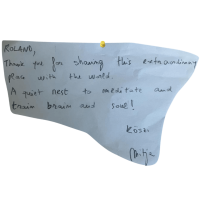 ROLAND,
Thank you for sharing this extraordinary
place with the world.
A quiet nest to meditate and
train brain and soul!